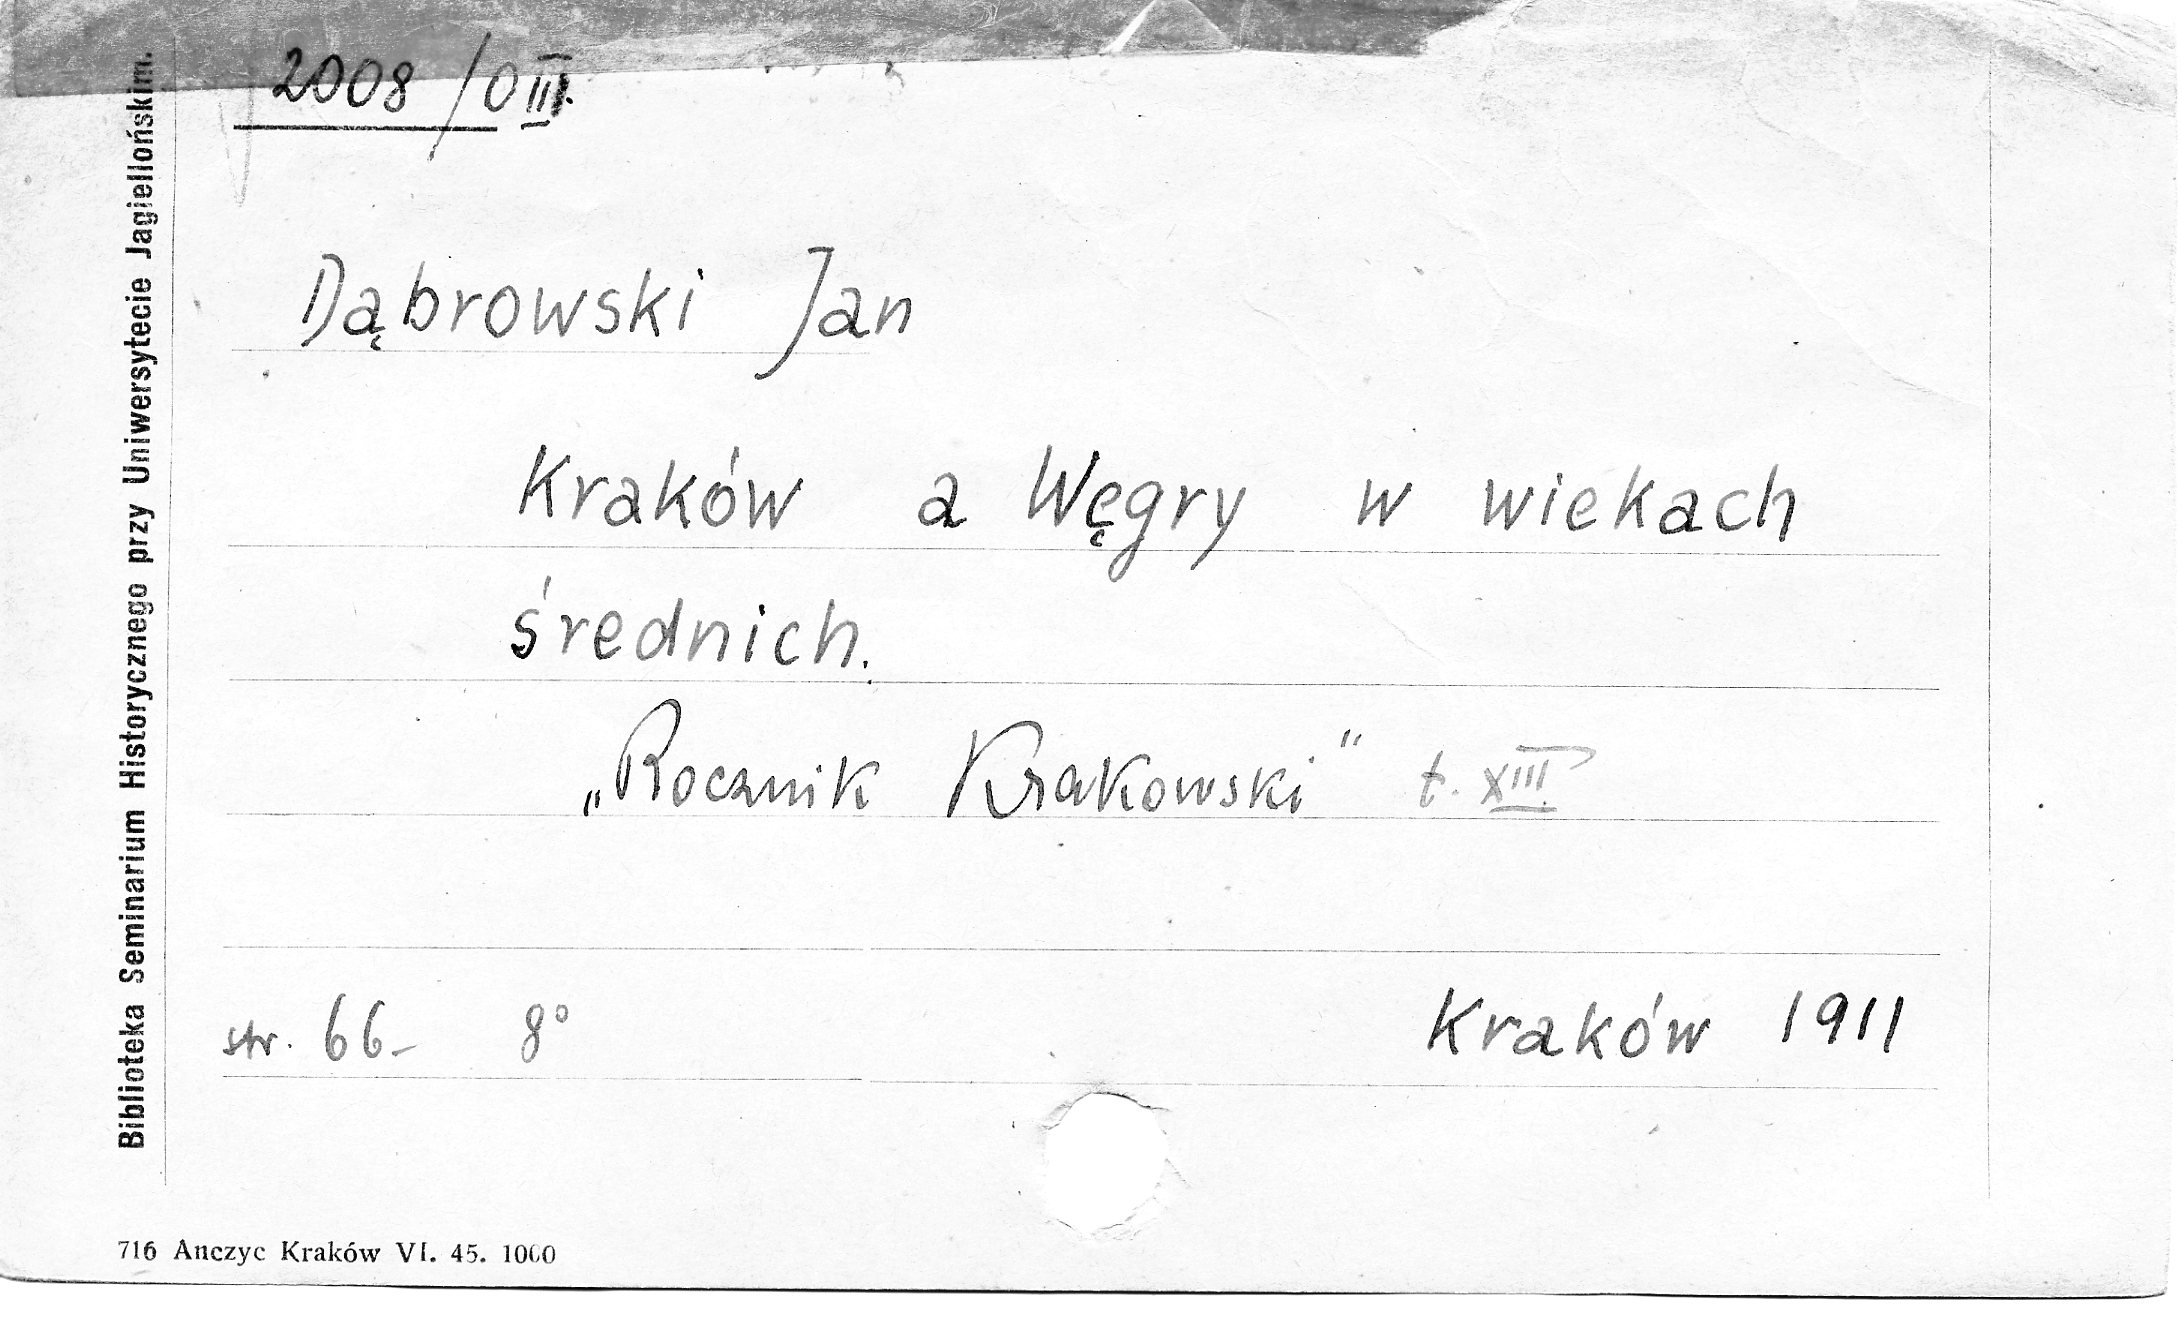 2008 / O III.
Dąbrowski Jan
Kraków a Węgry w wiekach
średnich.
„Rocznik Krakowski" t. XIII.
str. 66- 8°
Kraków 1911
Biblioteka Seminarium Historycznego przy Uniwersytecie Jagiellońskim.
716 Anczyc Kraków VI. 45. 1000